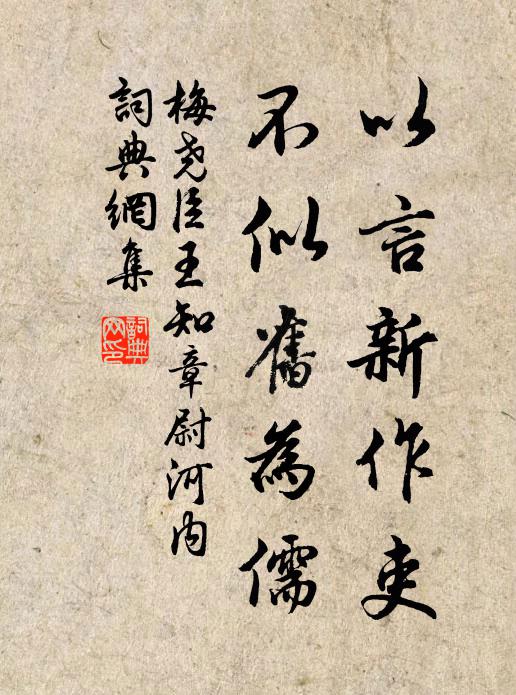 以言新作吏
不似舊為儒
梅尧臣王知章尉河内
詞典網集
詞典网印